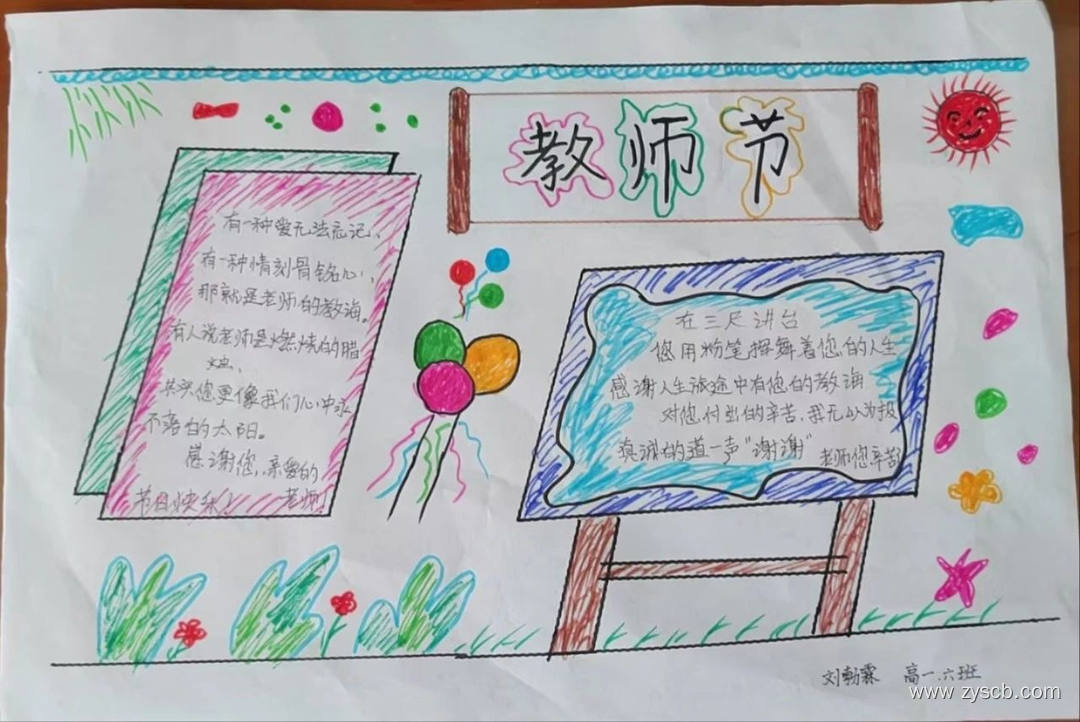 教师节
有一种爱无法忘记、
有一种情刻骨铭心、
那就是老师的教海。
有人说老师是燃烧的腊
烛、
其实您更像我们心中永
不落的太阳。
感谢您，亲爱的
老师！
节日快乐！
在三尺讲台
您用粉笔挥舞着您的人生
感谢人生旅途中有您的教海
对您付出的辛苦，我无以为报
真诚的道一声“谢谢”
老师您辛苦
高一.六班
www.zyscb.com